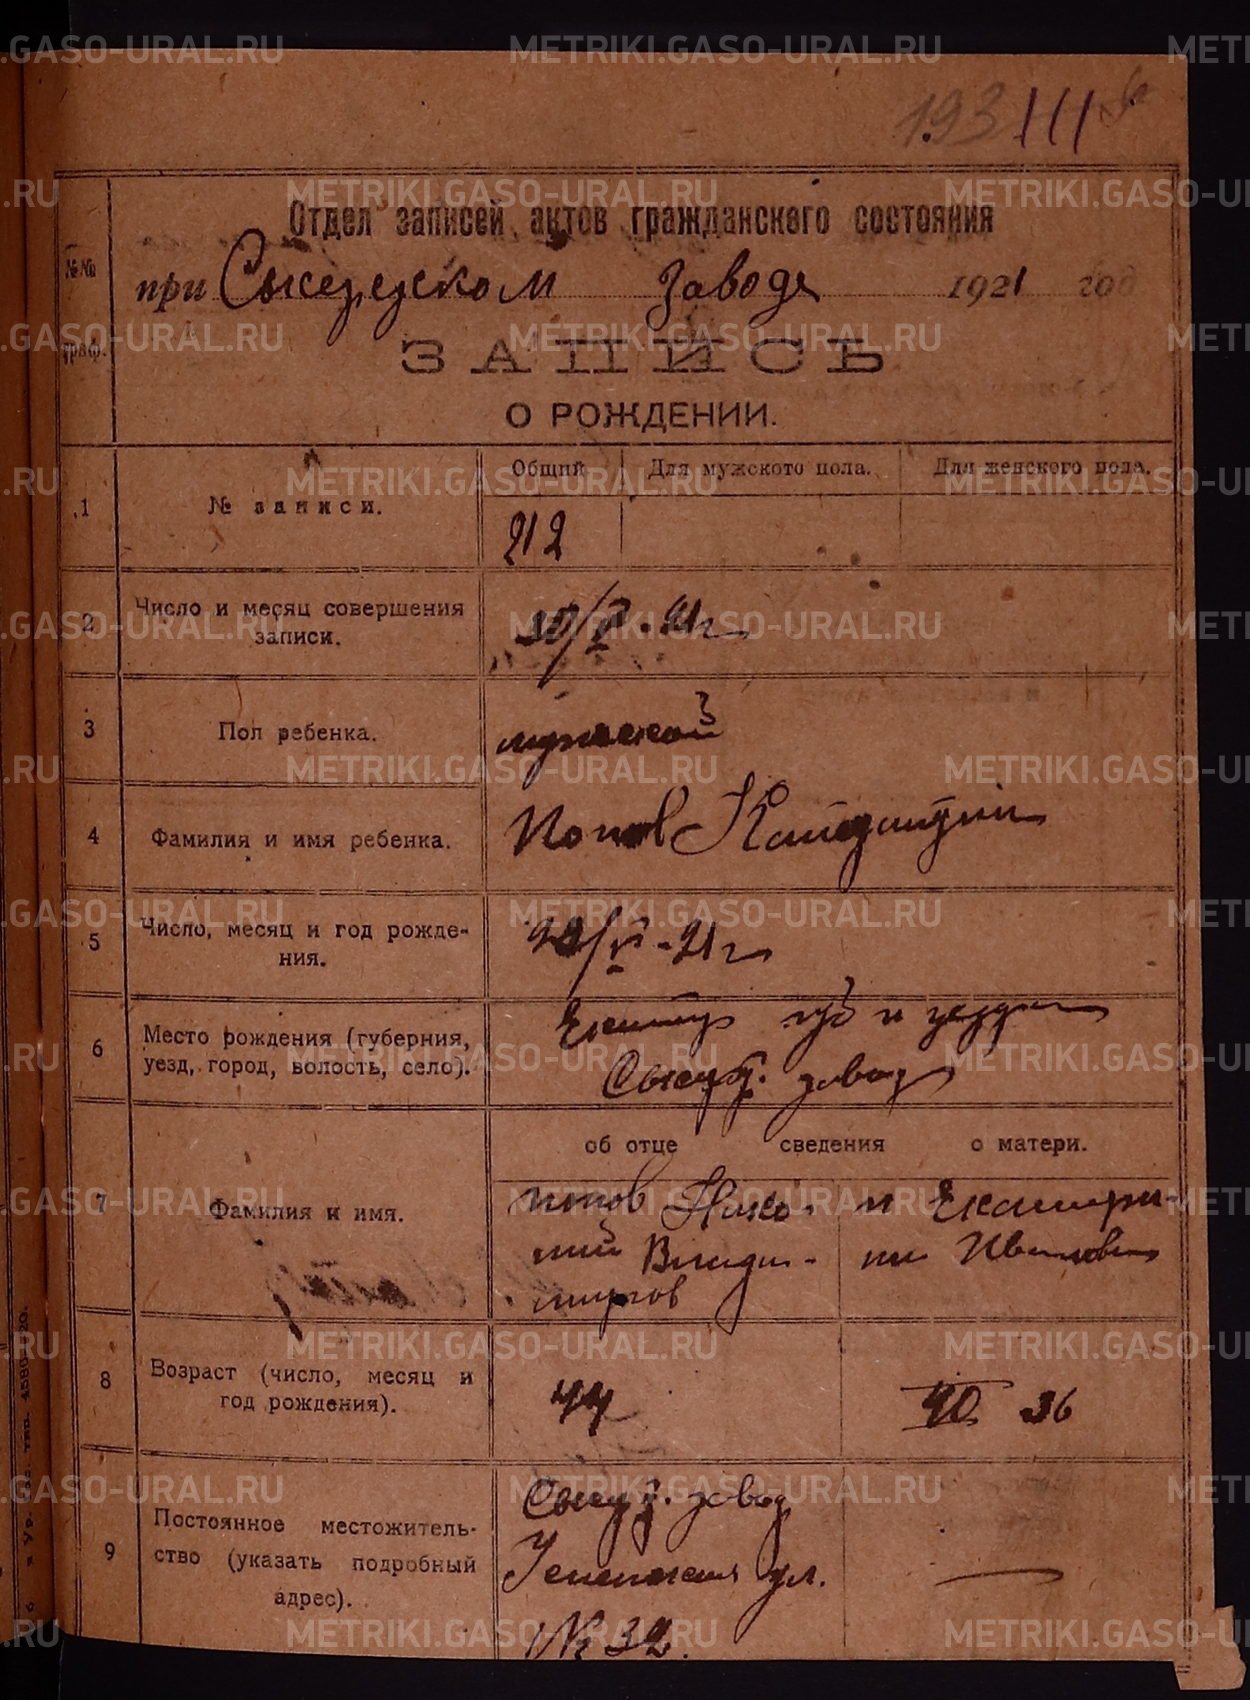 METRIKI.GASO-URAL.RU
193 III
Отдел записей актов гражданского состояния
№№ граф.
при Сысертском заводе 1921 год
ЗАПИСЬ
О РОЖДЕНИИ.
Общий Для мужского пола. Для женского пола.
1 № записи.
212
2 Число и месяц совершения
записи.
21г
3 Пол ребенка. мужской
4 Фамилия и имя ребенка. Попов
5 Число, месяц и год рожде-
ния.
21г
6 Место рождения (губерния,
уезд, город, волость, село).
губ и уезда
завод
об отце сведения о матери.
7 Фамилия и имя.
Попов Нико- и Екатери-
лай Влади- на Ивановна
миров
8 Возраст (число, месяц и
год рождения).
44 40 36
9 Постоянное местожитель-
ство (указать подробный
адрес).
завод
ул.
№ 32.